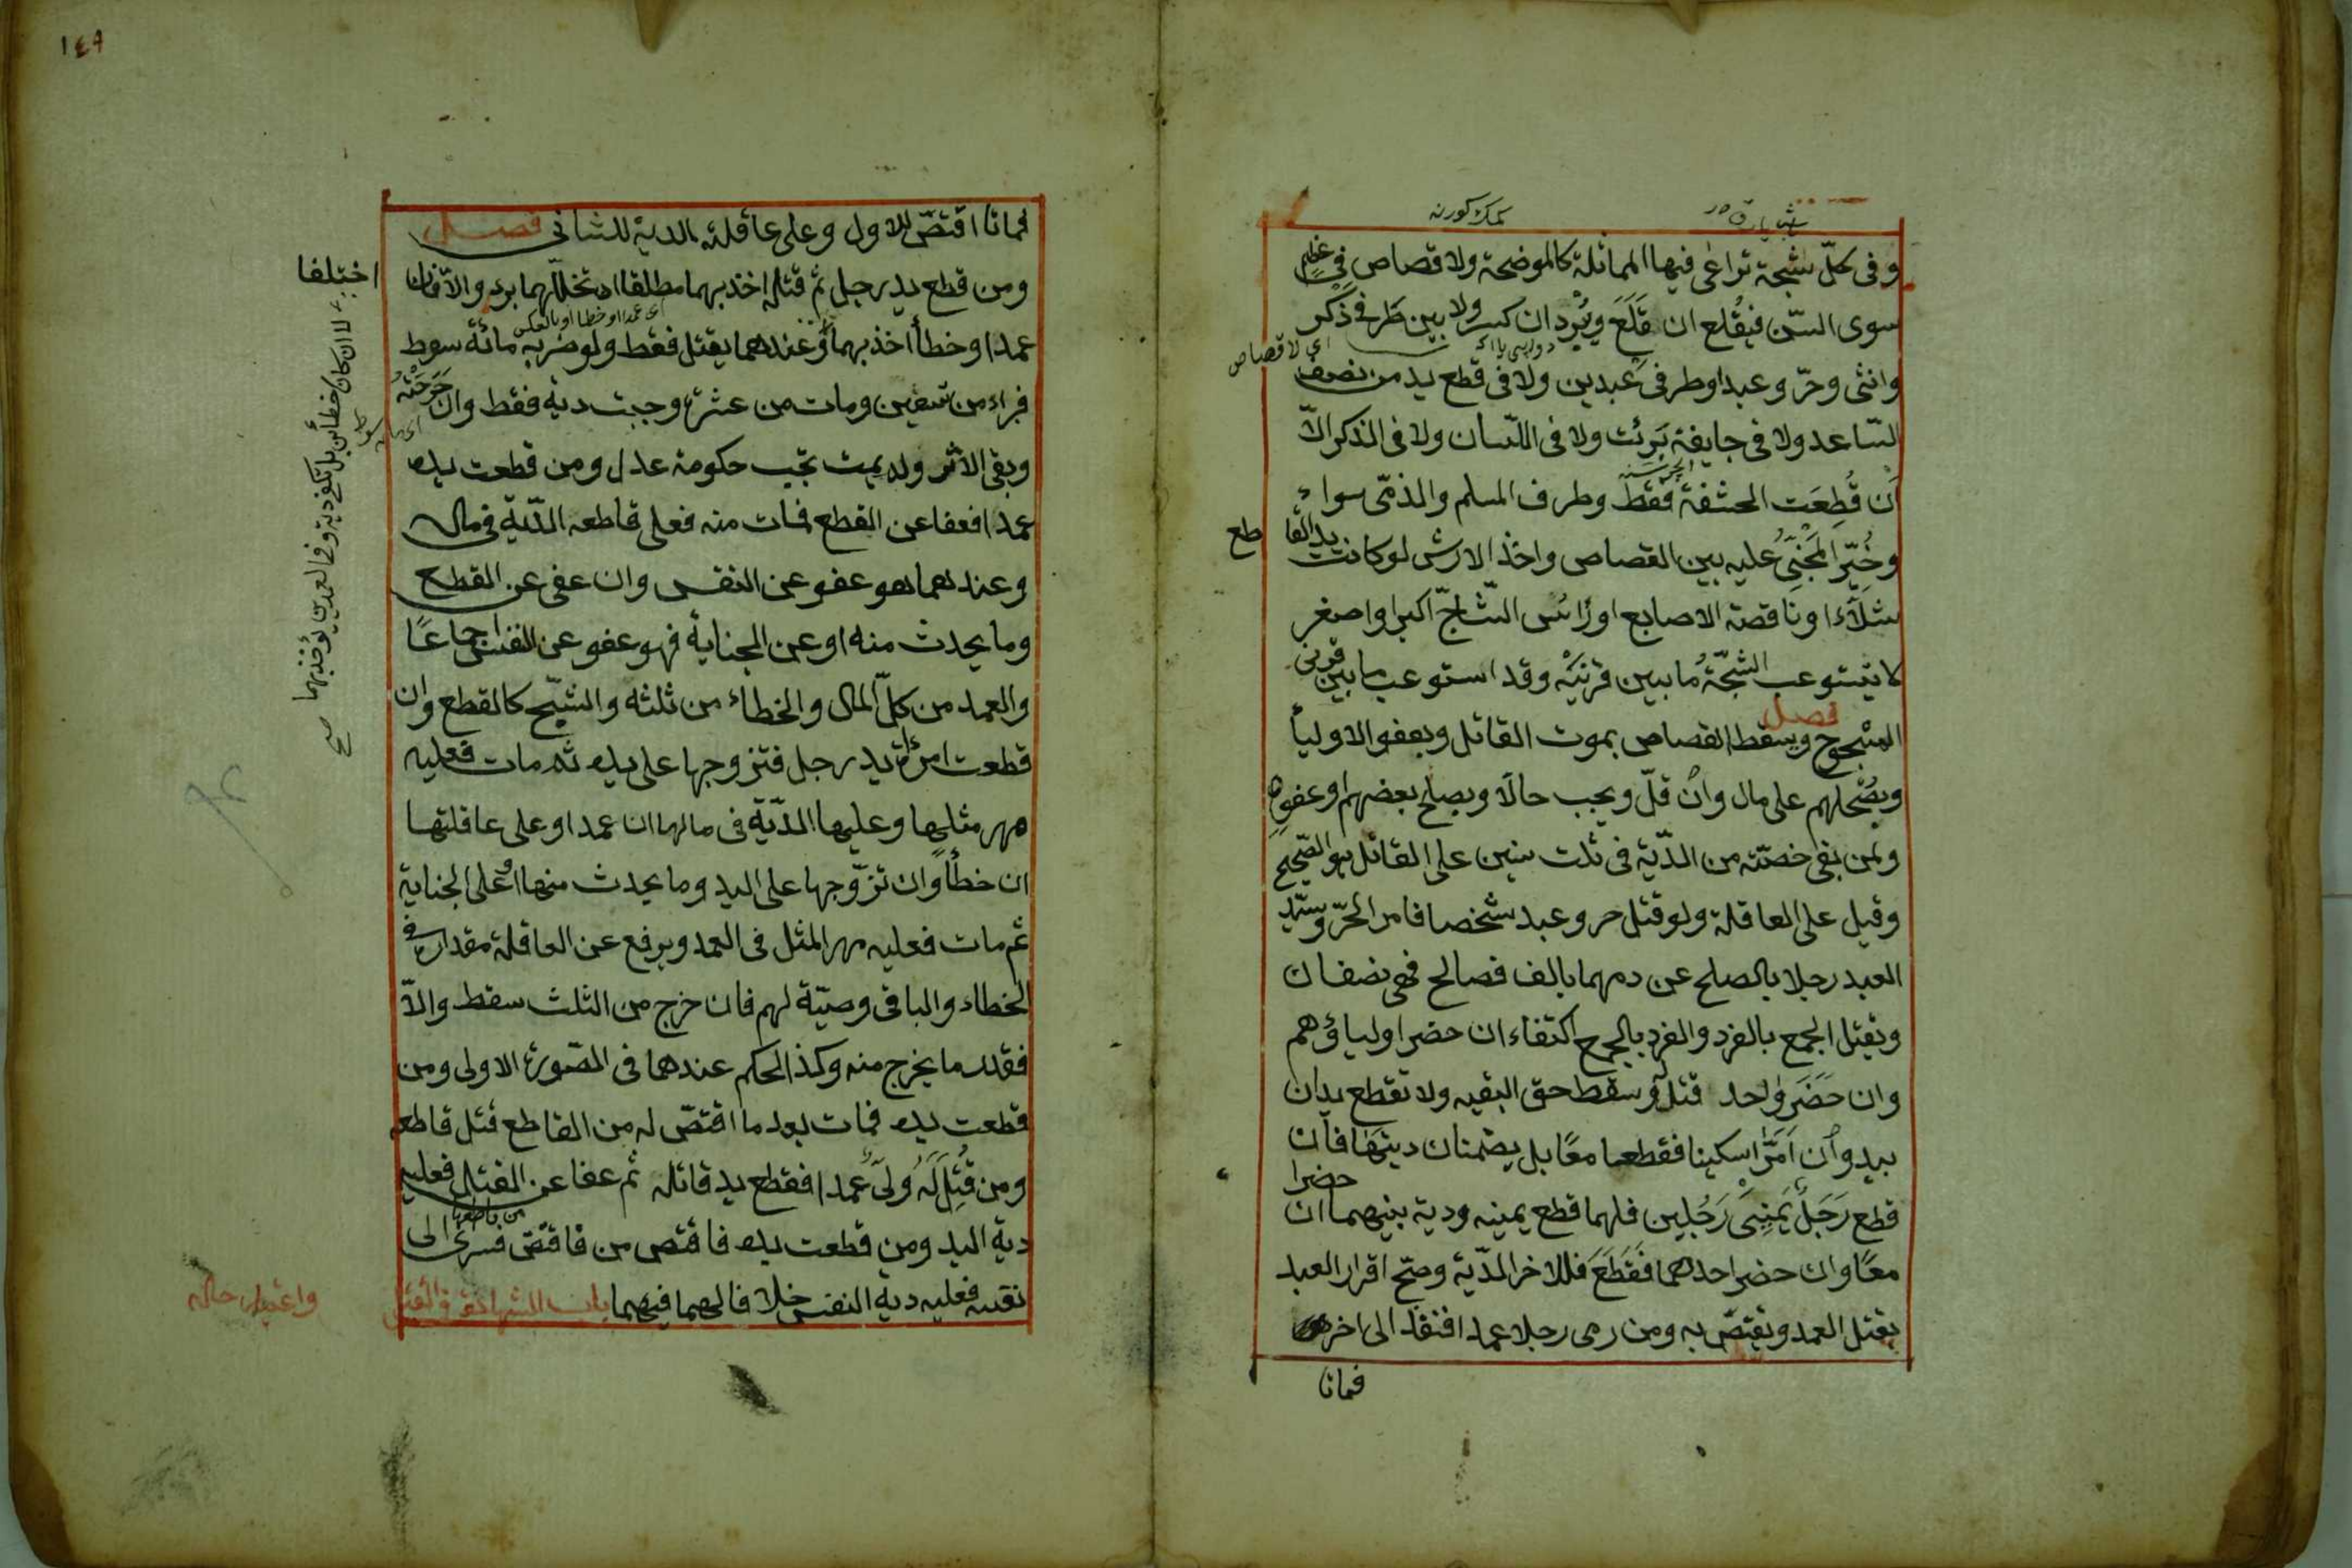 وفى كلّ شجة تراعى فيها المماثلة كالموضحة ولا قصاص فى عظم
سوى السّن فيقُلع ان قَلَعَ ويُبْرد ان كسر ولا بين طرفى ذكر
اى لا قصاص
وانثى وحرّ وعبد او طرفى عبدين ولا فى قطع يد من نصف
السّاعد ولا فى جايفة بَرِئت ولا فى اللّسان ولا فى الذكر الاّ
اَن قُطِعَت الحشفة فقط وطرف المسلم والذمّى سواء
وخُيّر المَجْنِىُّ عليه بين القصاص واخذ الارش لو كانت يد القاطع
شلاّء او ناقصة الاصابع او رَأس الشّاجّ اكبر او اصغر
لا تيستوعب الشجّةُ ما بين قرنَيْه وقد استوعب ما بين قرنى
المشجوج فصل ويسقط القصاص بموت القاتل وبعفو الاولياء
وبصُلحهم على مال وان قلّ ويجب حالاً وبصلح بعضهم او عفوه
ولمن بقى حصّته من الدّية فى ثلث سنين على القاتل هو الصّحيح
وقيل على العاقلة ولو قتل حر وعبد شخصا فامر الحرّ وسيّد
العبد رجلا بالصلح عن دمهما بالف فصالح فهى نصفان
ويقتل الجمع بالفرد والفرد بالجمع اكتفاء ان حضر اولياؤهم
وان حَضَرَ واحد قتل له وسقط حق البقيه ولا تقطع يدان
بيد وان اَمَرَّا سكينا فقطعها معًا بل يضمنان ديتها فان
قطع رَجَلٌ يَمِنىَ رَجُلين فلهما قطع يمينه ودية بينهما ان حضرا
معًا وان حضر احدهما فَقَطَعَ فللاخر الدّية وصحّ اقرار العبد
بقتل العمد ويقتصّ به ومن رمى رجلا عمدا فنفذ الى اخر
فماتا
١٤٩
فماتا اقتصّ للاول وعلى عاقلته الدية للثانى فصل
ومن قطع يد رجل ثم قتله اخذ بهما مطلقا ان تخلّلهما برء والاّ فان اختلفا
اى عمدا او خطا او بالعكس
عمدا وخطأ اخذ بهما وعندهما يقتل فقط ولو ضربه مائة سوط
فبراء من تسعين ومات من عشرة وجبت دية فقط وان جَرَحَتْهُ
وبقى الاثر ولم يمت تجب حكومة عدل ومن قطعت يده
عمدا فعفا عن القطع فمات منه فعلى قاطعه الدّية فى ماله
وعندهما هو عفو عن النفس وان عفى عن القطع
وما يحدث منه او عن الجناية فهو عفو عن النفس اجماعًا
والعمد من كلّ المال والخطاء من ثلثه والشّج كالقطع وان
قطعت امرئة يد رجل فتزوجها على يده ثم مات فعليه
مهر مثلها وعليها الدّية فى مالها ان عمدا وعلى عاقلتها
ان خطأً وان تزّوجها على اليد وما يحدث منها او على الجناية
ثم مات فعليه مهر المثل فى العمد ويرفع عن العاقلة مقداره فى
الخطاء والباقى وصيّة لهم فان خرج من الثلث سقط والاّ
فقدر ما يخرج منه وكذا الحكم عندهما فى الصّورة الاولى ومن
قطعت يده فمات بعد ما اقتصّ له من القاطع قتل قاطعه
ومن قُتِلَ لَهُ ولىّ عمدا فقطع يد قاتله ثم عفا عن القتل فعليه
دية اليد ومن قطعت يده فاقتص من قاطعها فسرى الى
نفسه فعليه دية النفس خلافا لهما فيهما باب الشهادة فى القتل
واعتبار حاله
لا ان كان خطأين بل تكفى دية وفى العمدين يؤخذ بهما